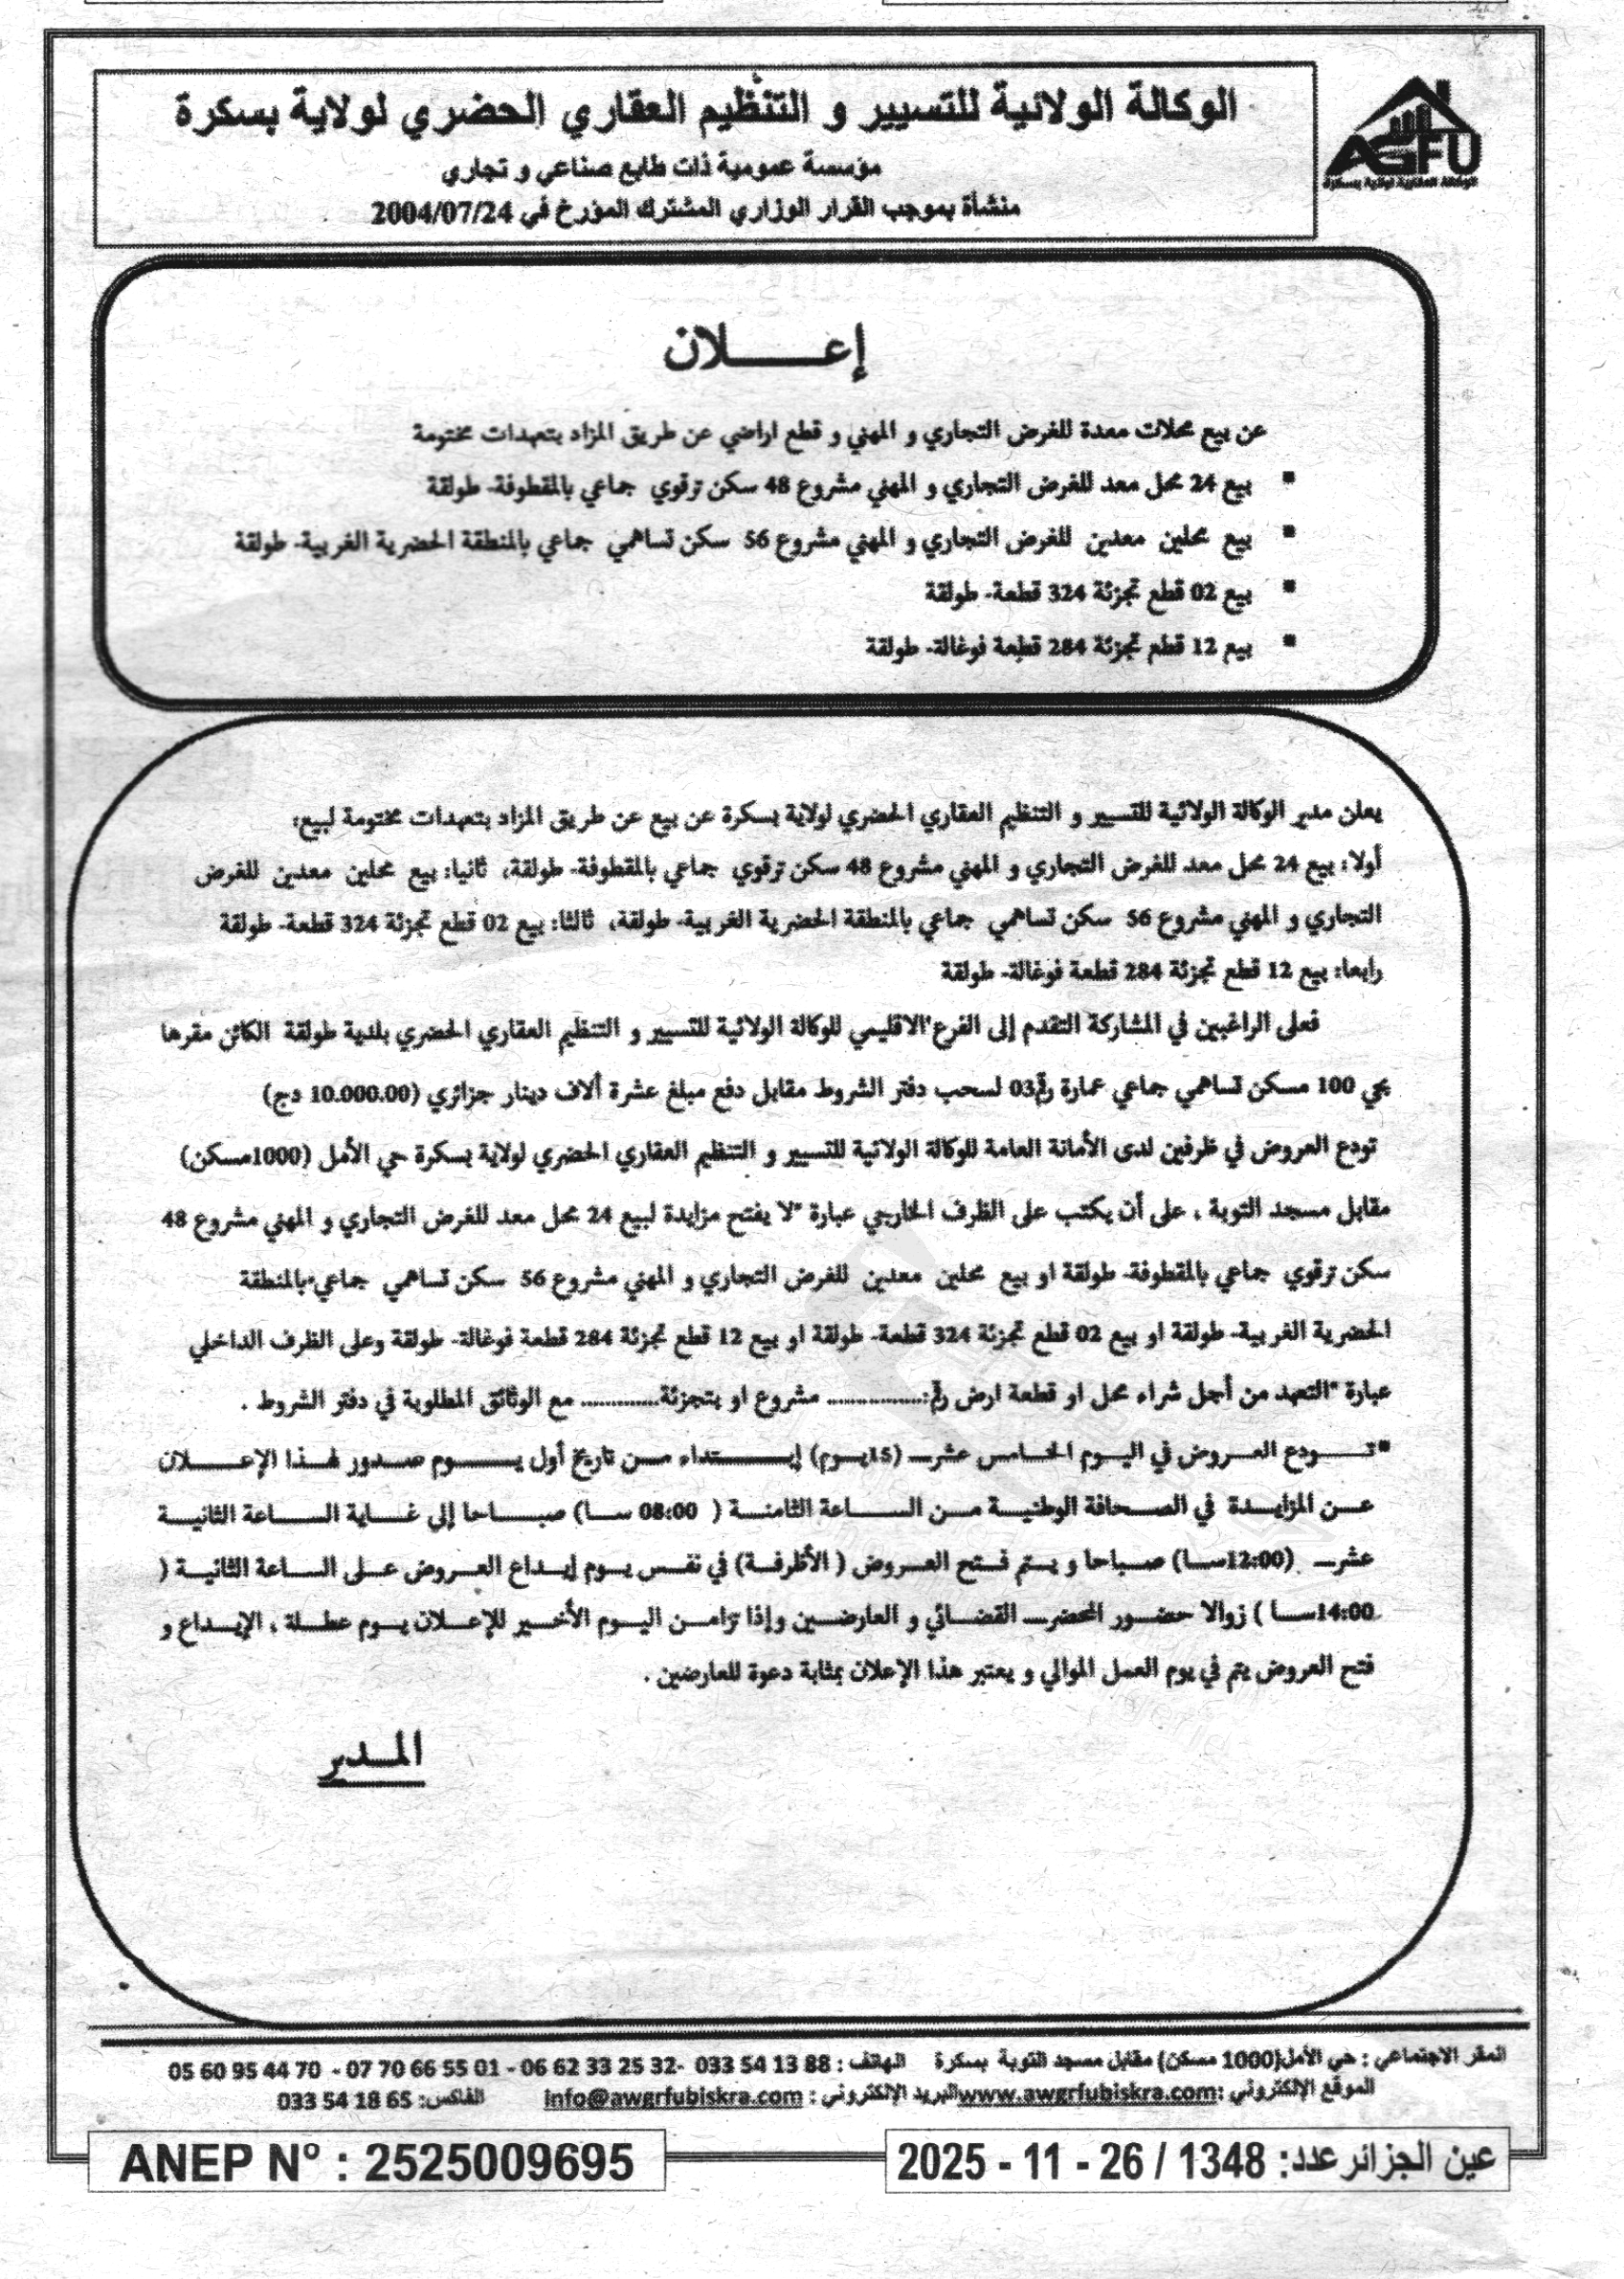 الوكالة الولائية للتسيير و التنظيم العقاري الحضري لولاية بسكرة
مؤسسة عمومية ذات طابع صناعي و تجاري
منشأة بموجب القرار الوزاري المشترك المؤرخ في 2004/07/24
AGFU
الوكالة العقارية لولاية بسكرة
إعـــــــلان
عن بيع محلات معدة للغرض التجاري و المهني و قطع اراضي عن طريق المزاد بتعهدات مختومة
▪ بيع 24 محل معد للغرض التجاري و المهني مشروع 48 سكن ترقوي جماعي بالمقطوفة- طولقة
▪ بيع محلين معدين للغرض التجاري و المهني مشروع 56 سكن تساهمي جماعي بالمنطقة الحضرية الغربية- طولقة
▪ بيع 02 قطع تجزئة 324 قطعة- طولقة
▪ بيع 12 قطع تجزئة 284 قطعة فوغالة- طولقة
يعلن مدير الوكالة الولائية للتسيير و التنظيم العقاري الحضري لولاية بسكرة عن بيع عن طريق المزاد بتعهدات مختومة لبيع:
أولا: بيع 24 محل معد للغرض التجاري و المهني مشروع 48 سكن ترقوي جماعي بالمقطوفة- طولقة، ثانيا: بيع محلين معدين للغرض
التجاري و المهني مشروع 56 سكن تساهمي جماعي بالمنطقة الحضرية الغربية- طولقة، ثالثا: بيع 02 قطع تجزئة 324 قطعة- طولقة
رابعا: بيع 12 قطع تجزئة 284 قطعة فوغالة- طولقة
فعلى الراغبين في المشاركة التقدم إلى الفرع الاقليمي للوكالة الولائية للتسيير و التنظيم العقاري الحضري بلدية طولقة الكائن مقرها
بحي 100 مسكن تساهمي جماعي عمارة رقم03 لسحب دفتر الشروط مقابل دفع مبلغ عشرة ألاف دينار جزائري (10.000.00 دج)
تودع العروض في ظرفين لدى الأمانة العامة للوكالة الولائية للتسيير و التنظيم العقاري الحضري لولاية بسكرة حي الأمل (1000مسكن)
مقابل مسجد التوبة ، على أن يكتب على الظرف الخارجي عبارة "لا يفتح مزايدة لبيع 24 محل معد للغرض التجاري و المهني مشروع 48
سكن ترقوي جماعي بالمقطوفة- طولقة او بيع محلين معدين للغرض التجاري و المهني مشروع 56 سكن تساهمي جماعي بالمنطقة
الحضرية الغربية- طولقة او بيع 02 قطع تجزئة 324 قطعة- طولقة او بيع 12 قطع تجزئة 284 قطعة فوغالة- طولقة وعلى الظرف الداخلي
عبارة "التعهد من أجل شراء محل او قطعة ارض رقم:................ مشروع او بتجزئة............. مع الوثائق المطلوبة في دفتر الشروط .
"تـــودع العـروض في اليـوم الخـامس عشـر (15يـوم) إبـــتداء مـن تاريخ أول يـــوم صـدور لهـذا الإعـلان
عـن المزايـدة في الصحـافة الوطنيـة مـن السـاعة الثامنـة ( 08:00 سـا) صبـاحا إلى غـاية السـاعة الثانيـة
عشـر (12:00سـا) صبـاحا و يـتم فـتح العـروض ( الأظرفـة) في نفـس يـوم إيـداع العـروض عـلى السـاعة الثانيـة (
14:00سـا ) زوالا حضـور المحضـر القضـائي و العارضـين وإذا تزامـن اليـوم الأخـير للإعـلان يـوم عطـلة ، الإيـداع و
فتح العروض يتم في يوم العمل الموالي و يعتبر هذا الإعلان بمثابة دعوة للعارضين .
المـدير
المقر الاجتماعي : حي الأمل(1000 مسكن) مقابل مسجد التوبة بسكرة الهاتف : 033 54 13 88 -06 62 33 25 32 - 07 70 66 55 01 - 05 60 95 44 70
الموقع الإلكتروني :www.awgrfubiskra.com البريد الإلكتروني : info@awgrfubiskra.com الفاكس: 033 54 18 65
عين الجزائر عدد: 1348 / 26 - 11 - 2025
ANEP N° : 2525009695